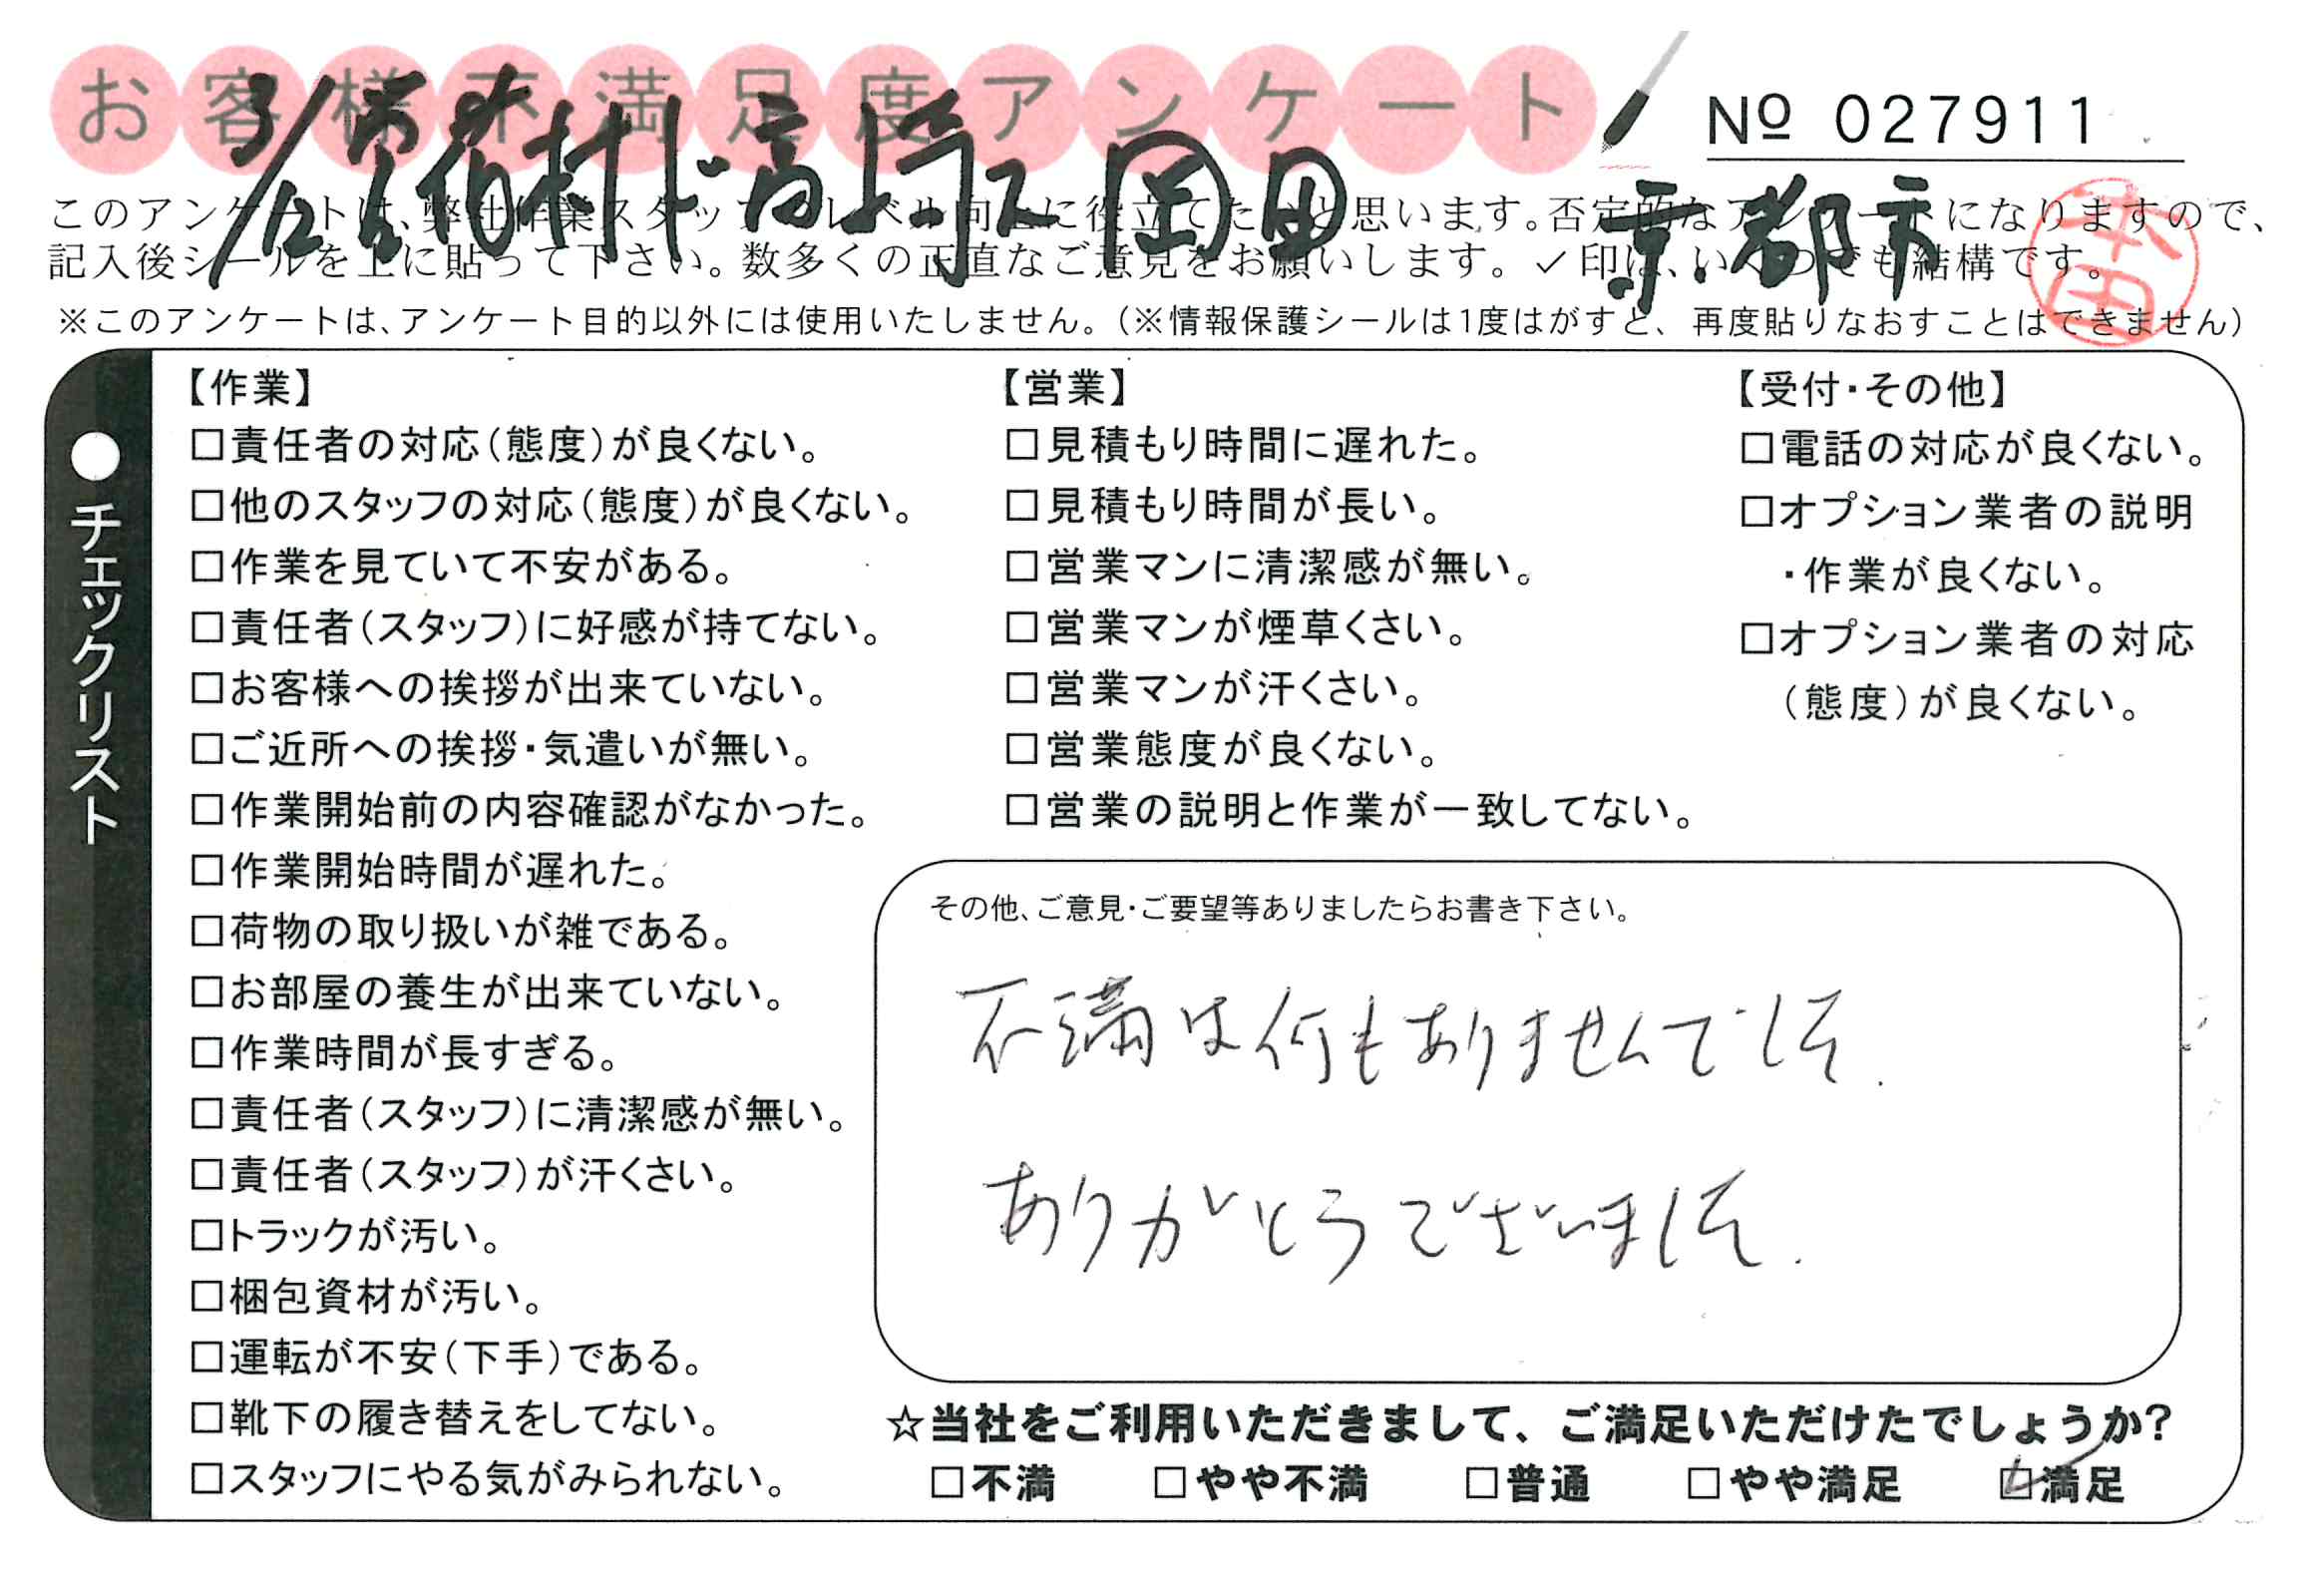 お客様不満足度アンケート
№ 027911
3/12 高上 岡田 京都市
本田
このアンケートは、弊社作業スタッフのレベル向上に役立てたいと思います。否定的なアンケートになりますので、
記入後シールを上に貼って下さい。数多くの正直なご意見をお願いします。✓印は、いくつでも結構です。
※このアンケートは、アンケート目的以外には使用いたしません。（※情報保護シールは1度はがすと、再度貼りなおすことはできません）
●チェックリスト
【作業】
□責任者の対応（態度）が良くない。
□他のスタッフの対応（態度）が良くない。
□作業を見ていて不安がある。
□責任者（スタッフ）に好感が持てない。
□お客様への挨拶が出来ていない。
□ご近所への挨拶・気遣いが無い。
□作業開始前の内容確認がなかった。
□作業開始時間が遅れた。
□荷物の取り扱いが雑である。
□お部屋の養生が出来ていない。
□作業時間が長すぎる。
□責任者（スタッフ）に清潔感が無い。
□責任者（スタッフ）が汗くさい。
□トラックが汚い。
□梱包資材が汚い。
□運転が不安（下手）である。
□靴下の履き替えをしてない。
□スタッフにやる気がみられない。
【営業】
□見積もり時間に遅れた。
□見積もり時間が長い。
□営業マンに清潔感が無い。
□営業マンが煙草くさい。
□営業マンが汗くさい。
□営業態度が良くない。
□営業の説明と作業が一致してない。
【受付・その他】
□電話の対応が良くない。
□オプション業者の説明
・作業が良くない。
□オプション業者の対応
（態度）が良くない。
その他、ご意見・ご要望等ありましたらお書き下さい。
不満は何もありませんでした.
ありがとうございました.
☆当社をご利用いただきまして、ご満足いただけたでしょうか？
□不満 □やや不満 □普通 □やや満足 ☑満足